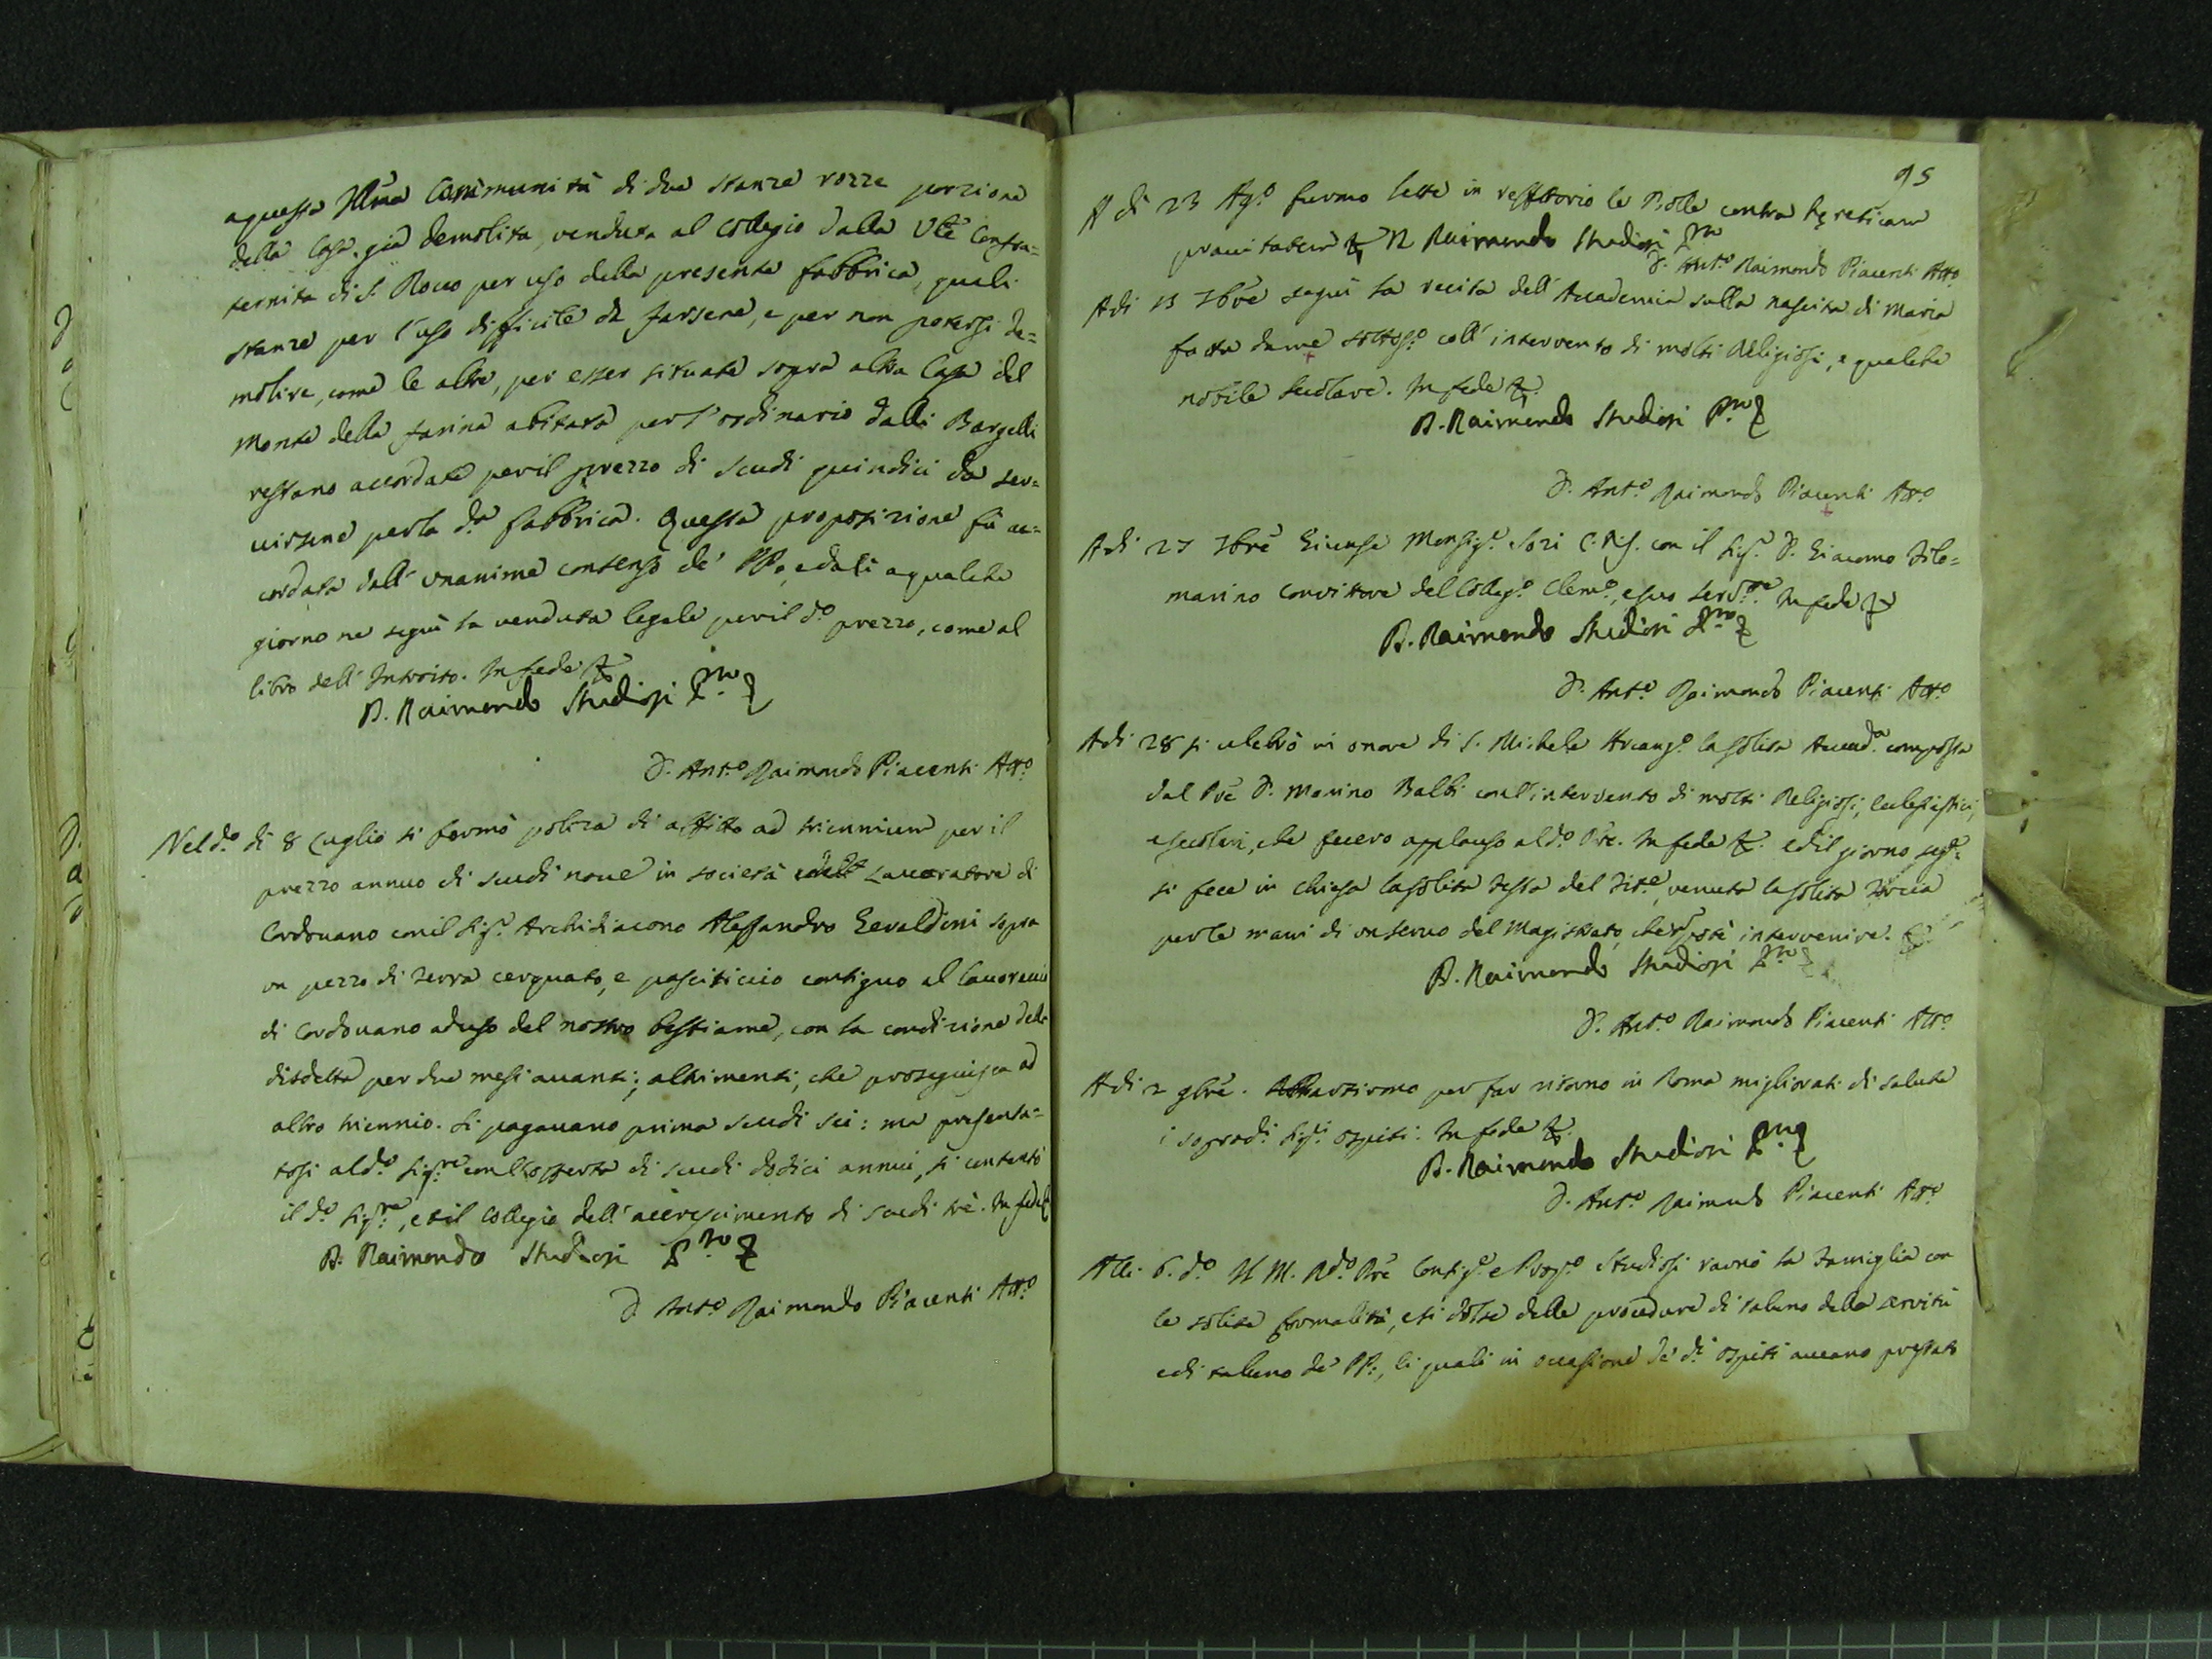 a questa Ill̃ma Com̃munità di due stanze rozze porzione
della Casa già demolita, venduta al Collegio dalla Vle Confra=
ternita di S. Rocco per uso della presente fabbrica, quali
stanze per l'uso difficile da farsene, e per non potersi de=
molire, come le altre, per esser situate sopra altra Casa del
Monte della farina abitata per l'ordinario dalli Bargelli
restano accordate per il prezzo di scudi quindici da ser=
uirsene per la d.ª fabbrica. Questa proposizione fù ac=
cordata dall'unanime consenso de' PP., e dali a qualche
giorno ne seguì la venduta legale per il d.º prezzo, come al
libro dell'Introito. In fede &
D. Raimondo Studiosi P.ro
D. Ant.º Raimondo Piacenti Att.º
Nel d.º di 8 Luglio si fermò poliza di affitto ad triennium per il
prezzo annuo di scudi noue in società Lauoratore di
Cordouano con il Sig.r Archidiacono Alessandro Geraldini sopra
un pezzo di terra cerquato, e pasciticcio contiguo al lauoreccio
di Cordouano ad uso del nostro bestiame, con la condizione della
disdetta per due mesi auanti; altrimenti, che proseguisca ad
altro triennio. Si pagauano prima scudi sei: ma presenta=
tosi al d.º Sig.re con l'offerta di scudi dodici annui, si contentò
il d.º Sig.re, et il Collegio dell'accrescimento di scudi trè. In fede &
D. Raimondo Studiosi P.ro
D. Ant.º Raimondo Piacenti Att.º
95
A di 23 Ag.º furono lette in reffettorio le Bolle contra hęreticam
prauitatem & D. Raimondo Studiosi P.ro
D. Ant.º Raimondo Piacenti Att.º
A di 13 7bre seguì la recita dell'Accademia sulla nascita di Maria
fatta da me sottos.º coll'intervento di molti Religiosi, e qualche
nobile secolare. In fede &.
D. Raimondo Studiosi P.ro
D. Ant.º Raimondo Piacenti Att.º
A di 27 7bre Giunse Monsig.r Sori C.R.S. con il Sig.r D. Giacomo Filo=
marino Convittore del Colleg.º Clem.º, e suo Serv.re In fede &
D. Raimondo Studiosi P.ro
D. Ant.º Raimondo Piacenti Att.º
A di 28 si celebrò in onore di S. Michele Arcang.º la solita Accad.ª composta
dal Pre D. Marino Balbi con l'intervento di molti Religiosi, Eclesiastici,
e secolari, che fecero applauso al d.º Pre. In fede &. ed il giorno seg.e
si fece in chiesa la solita festa del Tit.e, venuta la solita torcia
per le mani di un seruo del Magistrato, che potè intervenire. &
D. Raimondo Studiosi P.ro
D. Ant.º Raimondo Piacenti Att.º
A di 2 9bre. partirono per far ritorno in Roma migliorati di salute
i soprad.i Sig.ri ospiti. In fede &.
D. Raimondo Studiosi P.ro
D. Ant.º Raimondo Piacenti Att.º
Alli 6. d.º Il M. Rd.º Pre Consig.e e Prop.º Studiosi raunò la Famiglia con
le solite formalità, e si dolse delle procedure di taluno della servitù
e di taluno de' PP., li quali in occasione de' d.i ospiti aveano prestato